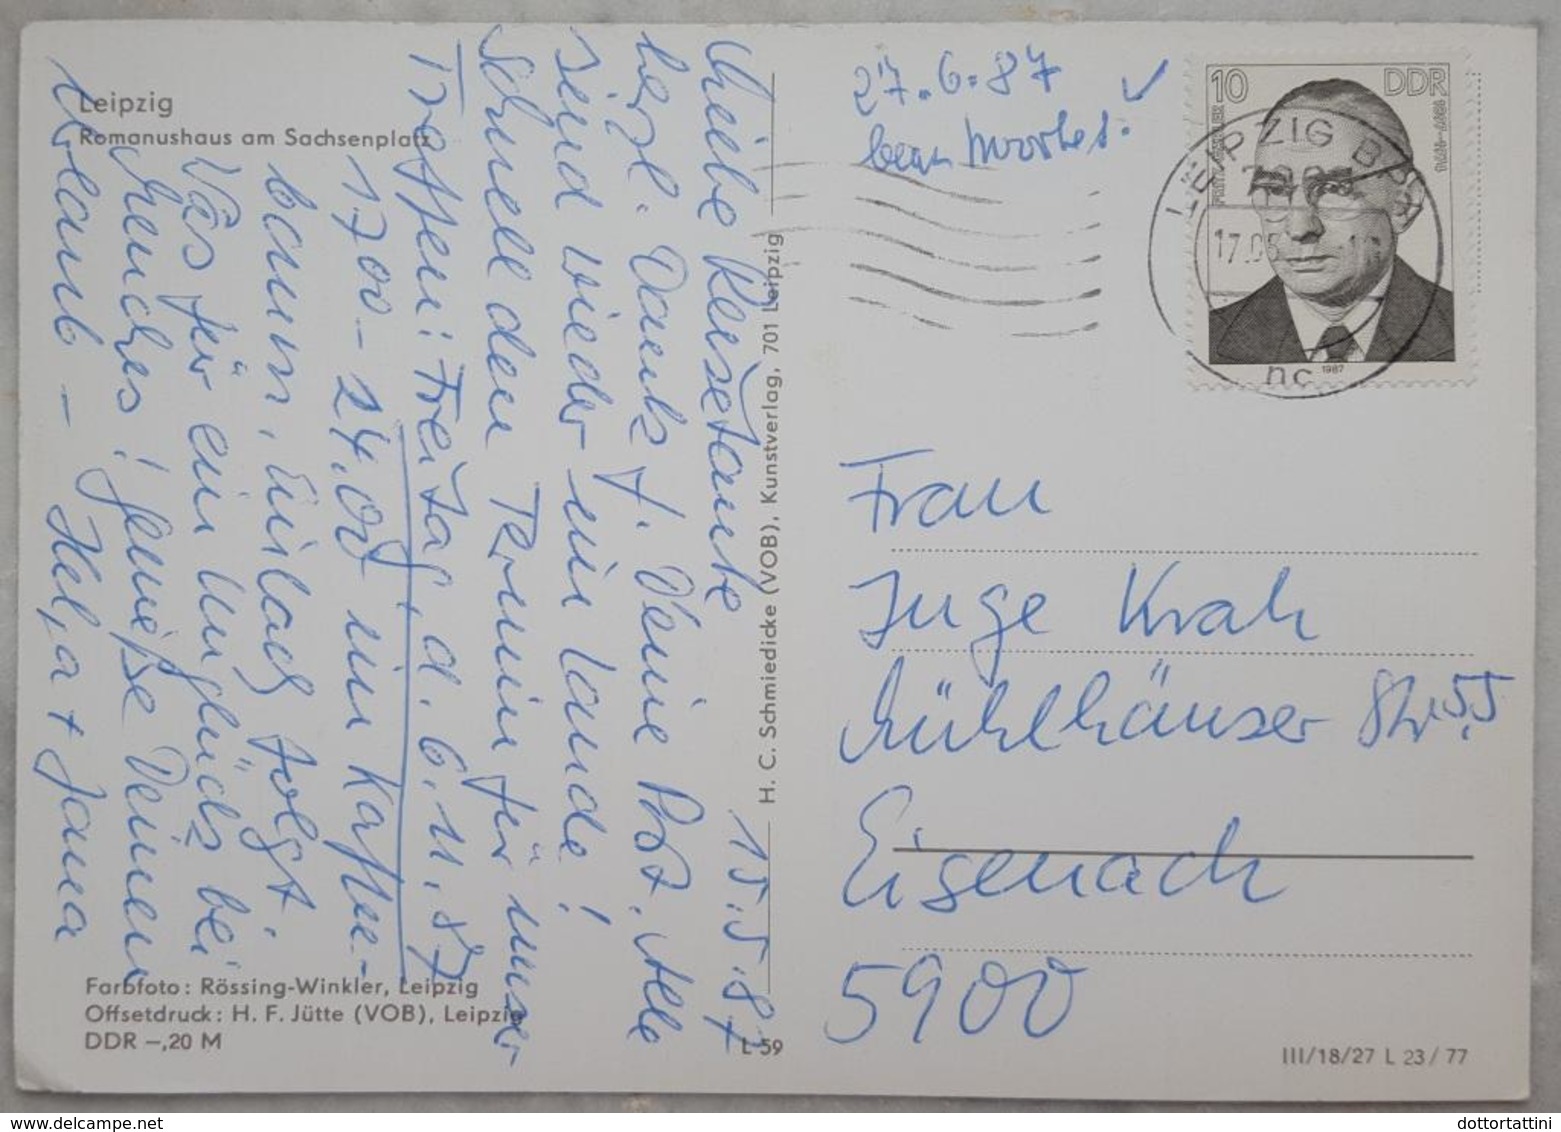 Leipzig
Romanushaus am Sachsenplatz
15.5.87
Liebe Reisetante
herzl. Dank f. Deine Post. Alle
sind wieder im Lande!
Schnell den Termin für unser
Treffen: Freitag, d. 6.11.87
17.00 - 24.00 im Kaffee-
baum, Einlaß folgt.
Was für ein Unglück bei
Menches! Genieße Deinen
Urlaub - Helga + Jana
Farbfoto: Rössing-Winkler, Leipzig
Offsetdruck: H. F. Jütte (VOB), Leipzig
DDR -,20 M
H. C. Schmiedicke (VOB), Kunstverlag, 701 Leipzig
L 59
27.6.87
10
DDR
1987
LEIPZIG BPA
17.05
nc
Frau
Inge Krah
Mühlhäuser Str. 55
Eisenach
5900
III/18/27 L 23/77
dottortattini